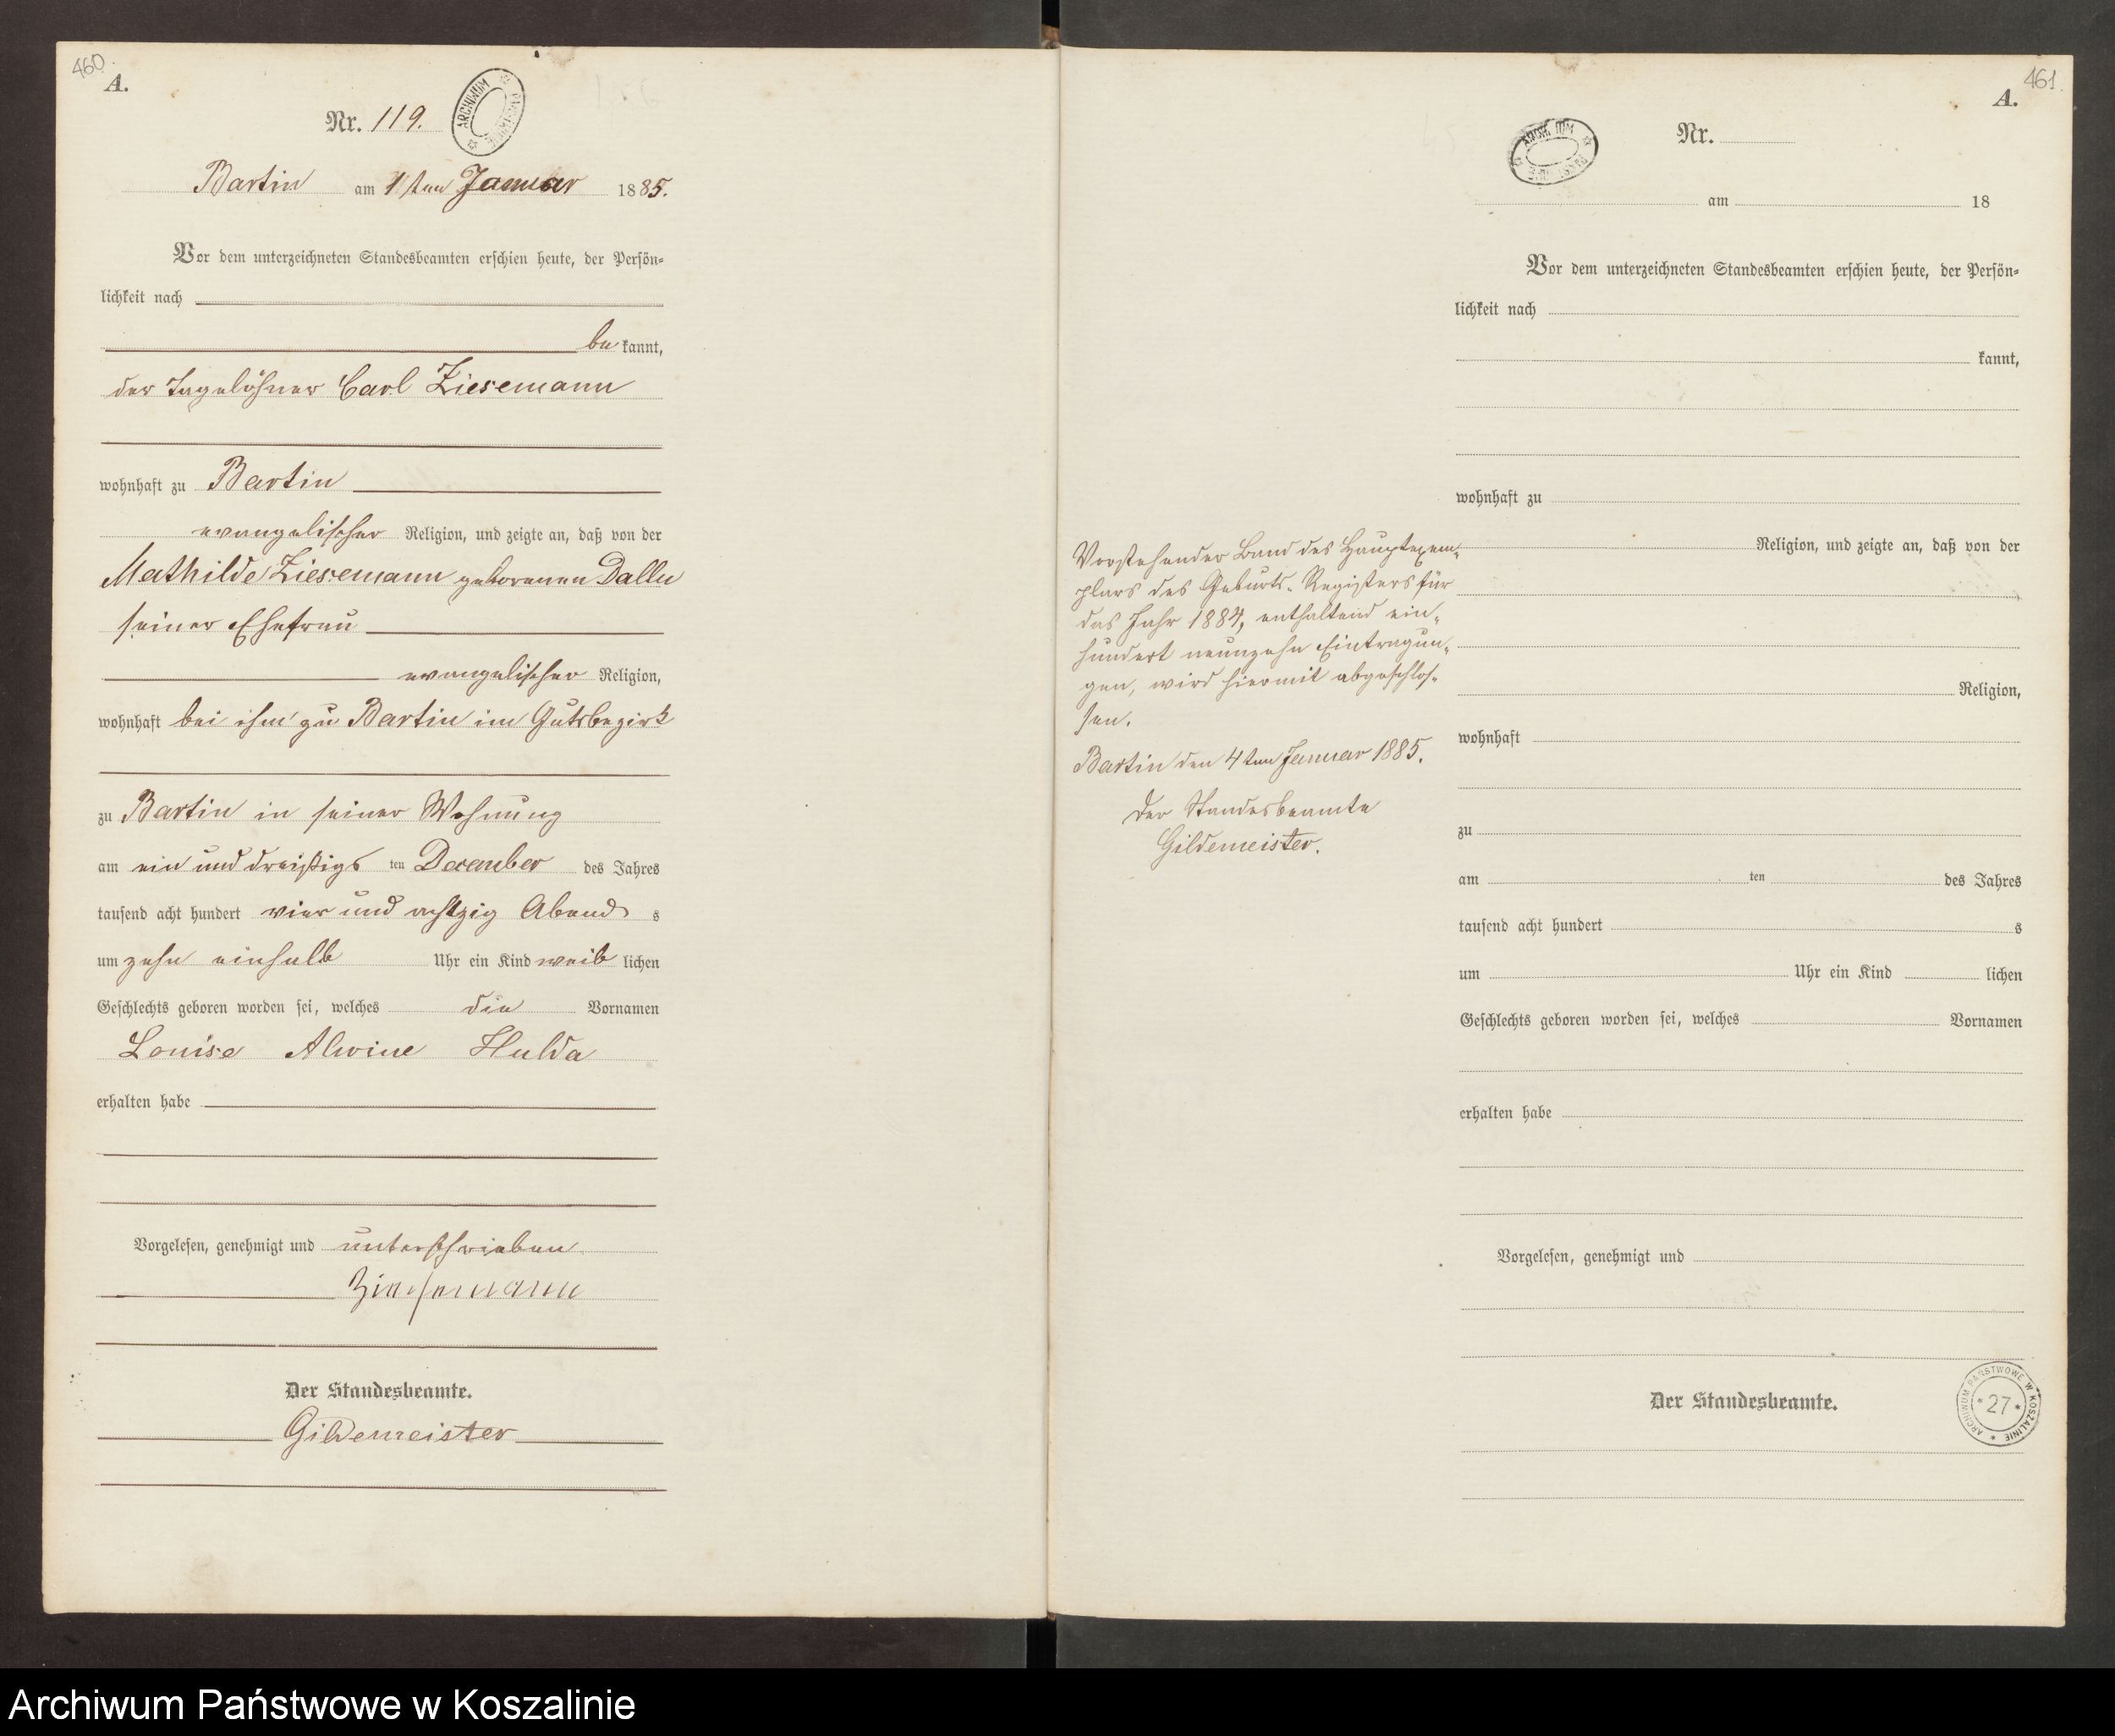 460
A.
Nr. 119.
ARCHIWUM
Bartin am 1sten Januar 1885.
Vor dem unterzeichneten Standesbeamten erschien heute, der Persön-
lichkeit nach
be kannt,
der Tagelöhner Carl Ziesemann
wohnhaft zu Bartin
evangelischer Religion, und zeigte an, daß von der
Mathilde Ziesemann geborenen
seiner Ehefrau
evangelischer Religion,
wohnhaft bei ihm zu Bartin im Gutsbezirk
zu Bartin in seiner Wohnung
am ein und dreißigs ten December des Jahres
tausend acht hundert vier und achtzig Abend s
um zehn einhalb Uhr ein Kind weib lichen
Geschlechts geboren worden sei, welches die Vornamen
Louise Alwine Hulda
erhalten habe
Vorgelesen, genehmigt und unterschrieben
Ziesemann
Der Standesbeamte.
Gildemeister
461
A.
Nr.
am 18
Vor dem unterzeichneten Standesbeamten erschien heute, der Persön-
lichkeit nach
kannt,
wohnhaft zu
Religion, und zeigte an, daß von der
Religion,
wohnhaft
zu
am ten des Jahres
tausend acht hundert s
um Uhr ein Kind lichen
Geschlechts geboren worden sei, welches Vornamen
erhalten habe
Vorgelesen, genehmigt und
Der Standesbeamte.
ARCHIWUM PAŃSTWOWE W KOSZALINIE
* 27 *
Vorstehender Band des Hauptexem-
plars des Geburts-Registers für
das Jahr 1884, enthaltend ein-
hundert neunzehn Eintragun-
gen, wird hiermit abgeschlos-
sen.
Bartin den 4ten Januar 1885.
Der Standesbeamte
Gildemeister.
Archiwum Państwowe w Koszalinie